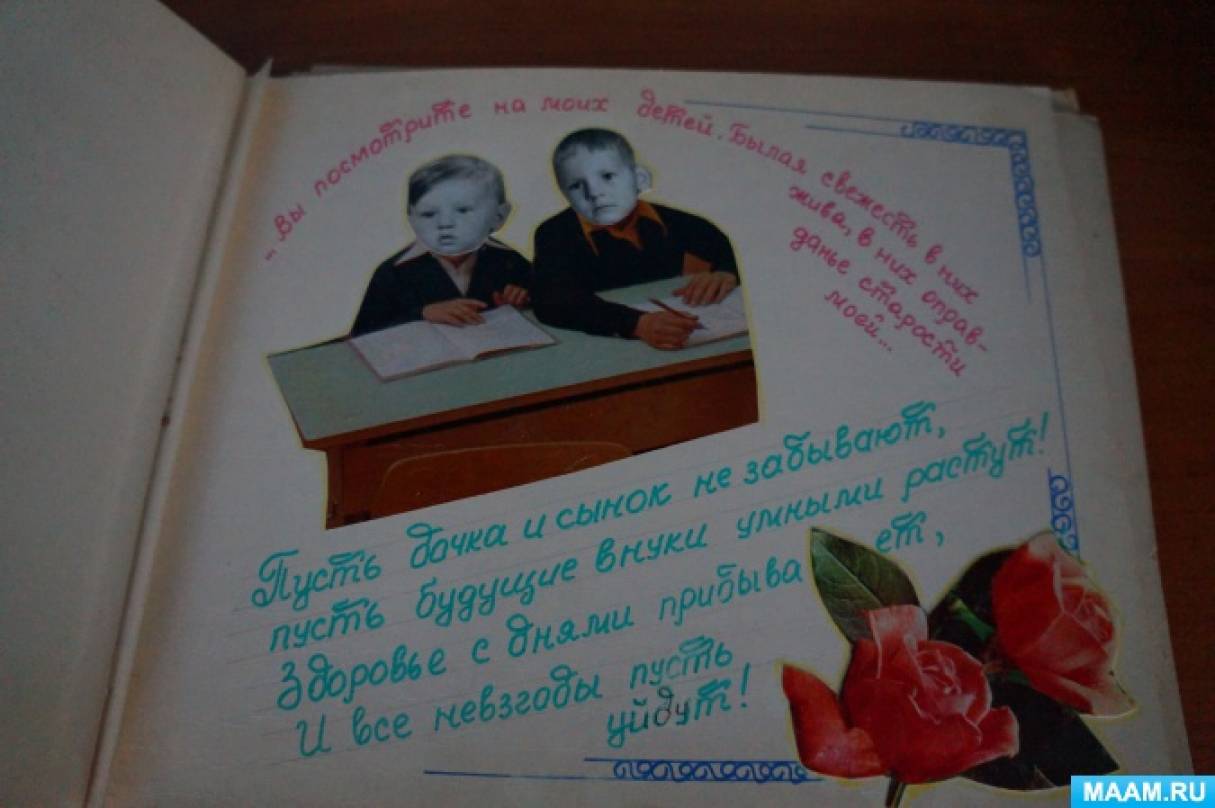 ...Вы посмотрите на моих детей. Былая свежесть в них
жива, в них оправ-
данье старости
моей...
Пусть дочка и сынок не забывают,
пусть будущие внуки умными растут!
Здоровье с днями прибывает,
И все невзгоды пусть
уйдут!
MAAM.RU